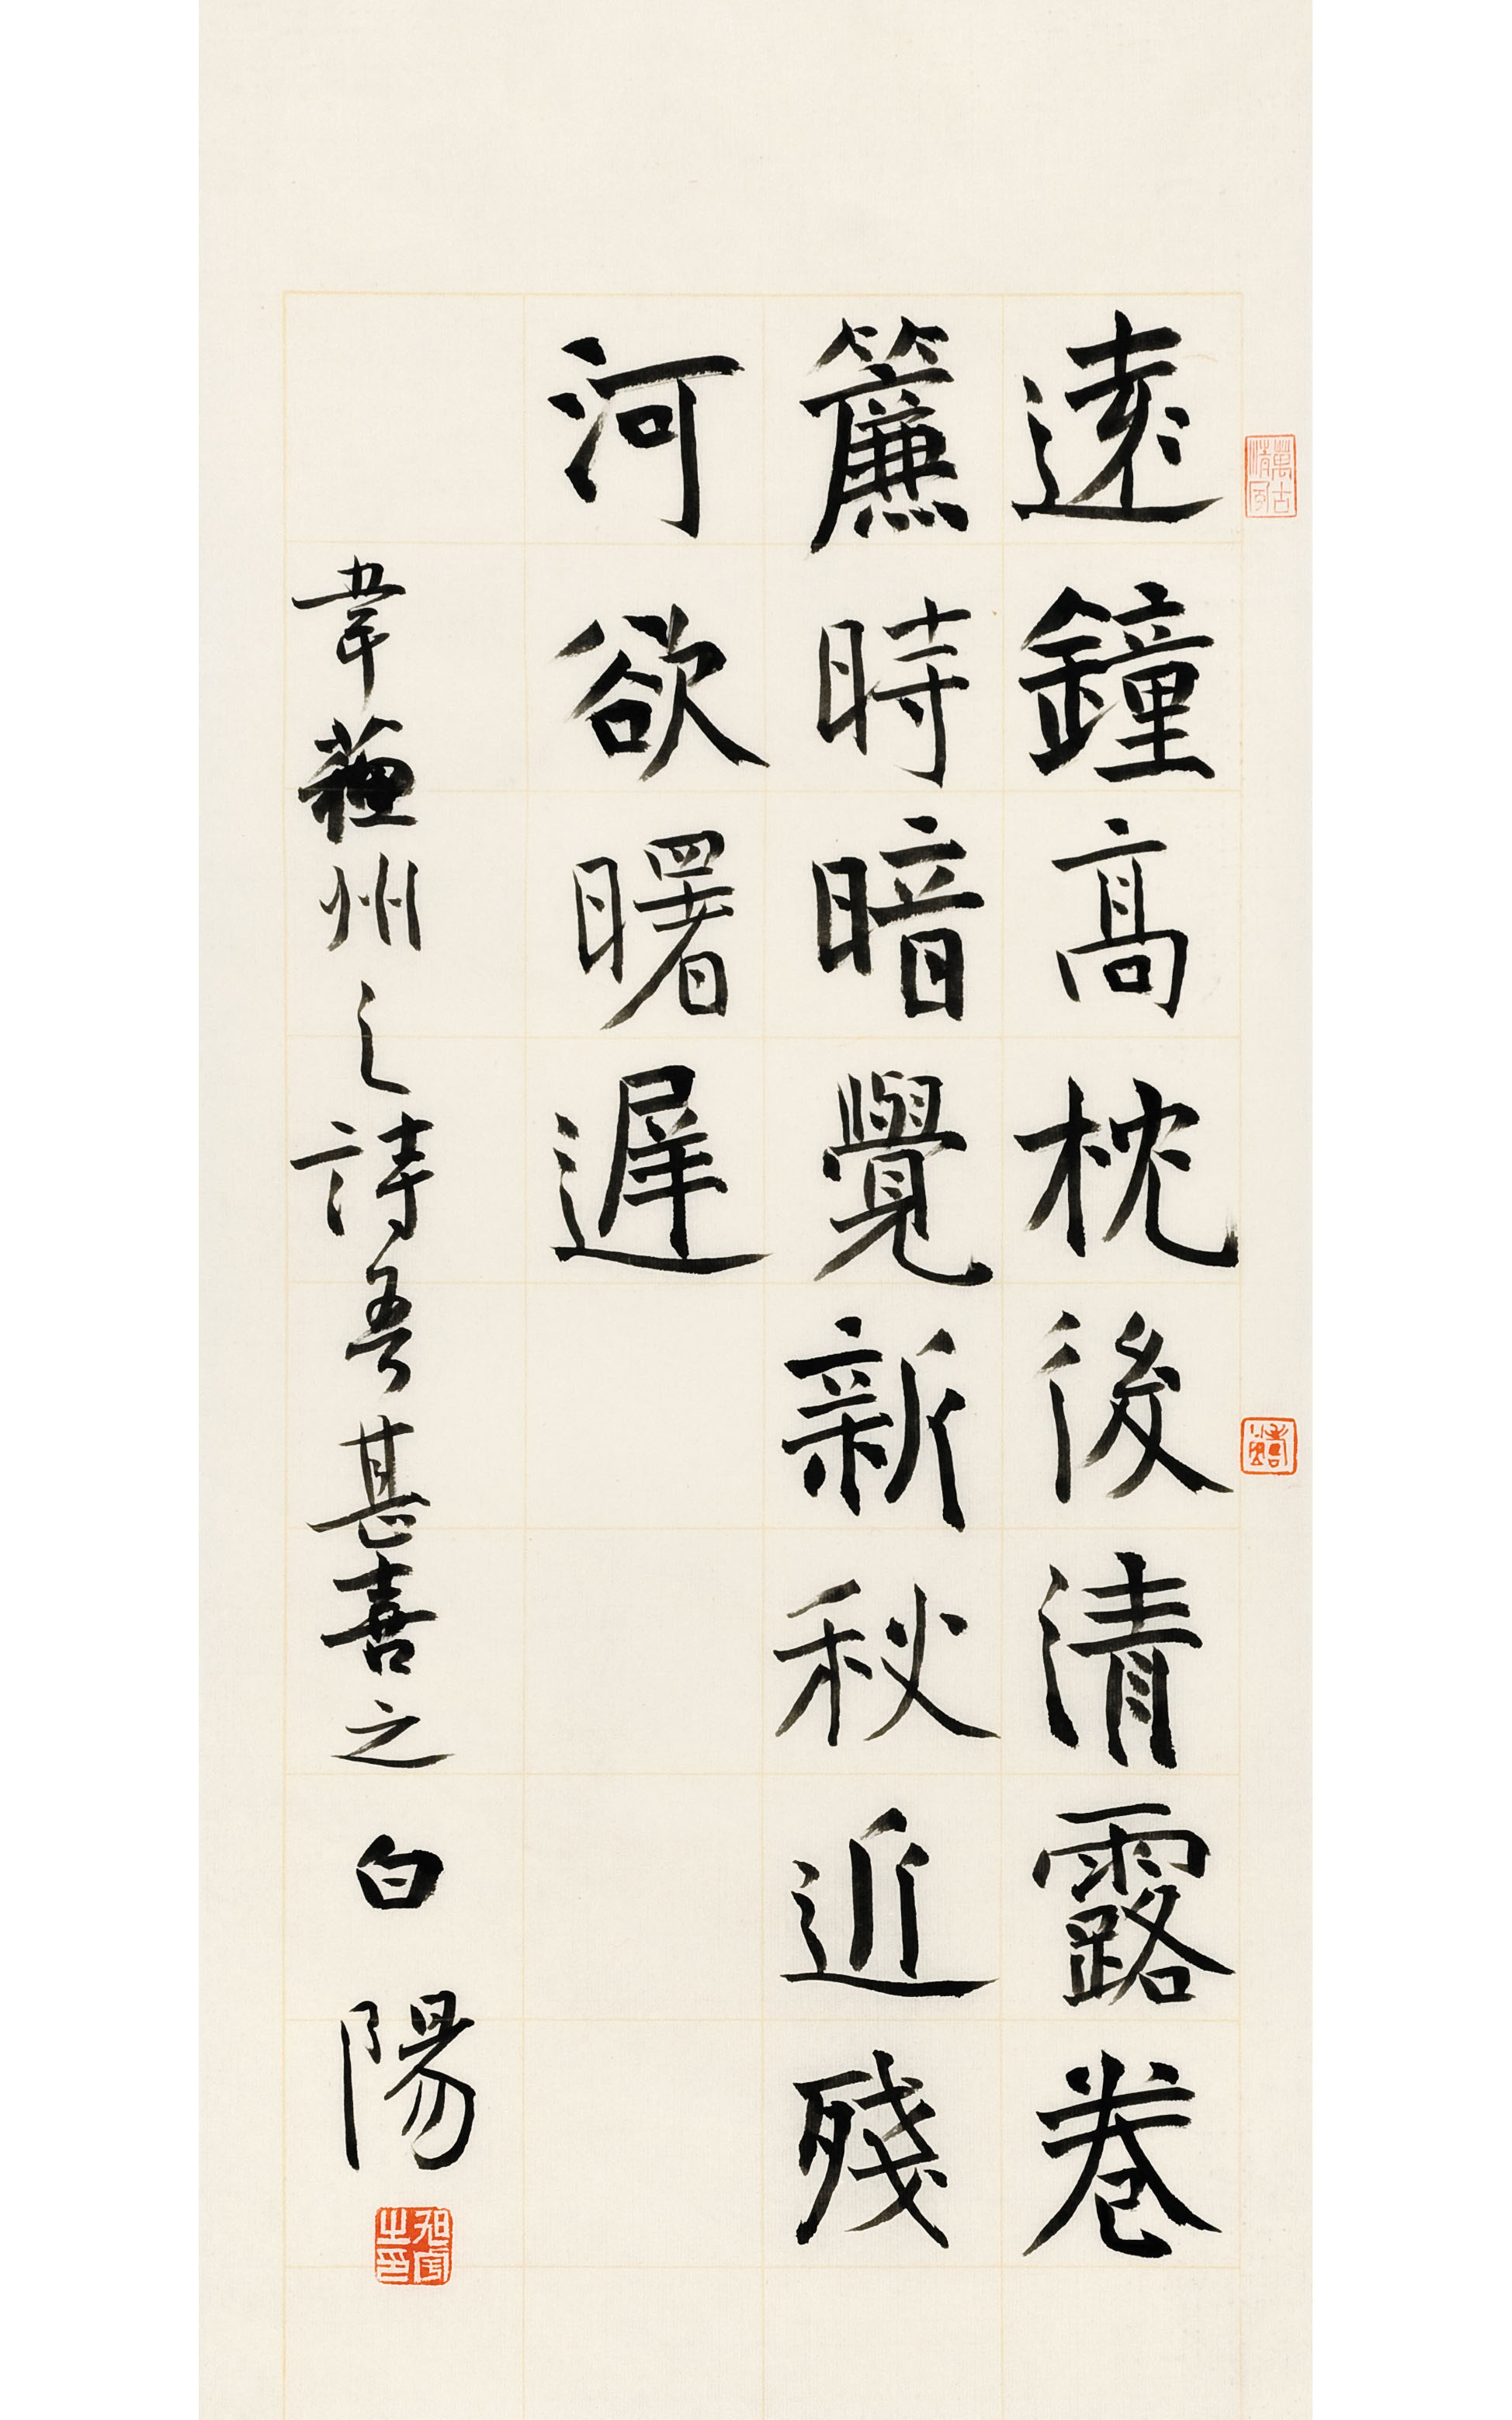 遠鐘高枕後清露卷
簾時暗覺新秋近殘
河欲曙遲
韋蘇州之詩吾甚喜之 白陽
萬古清風